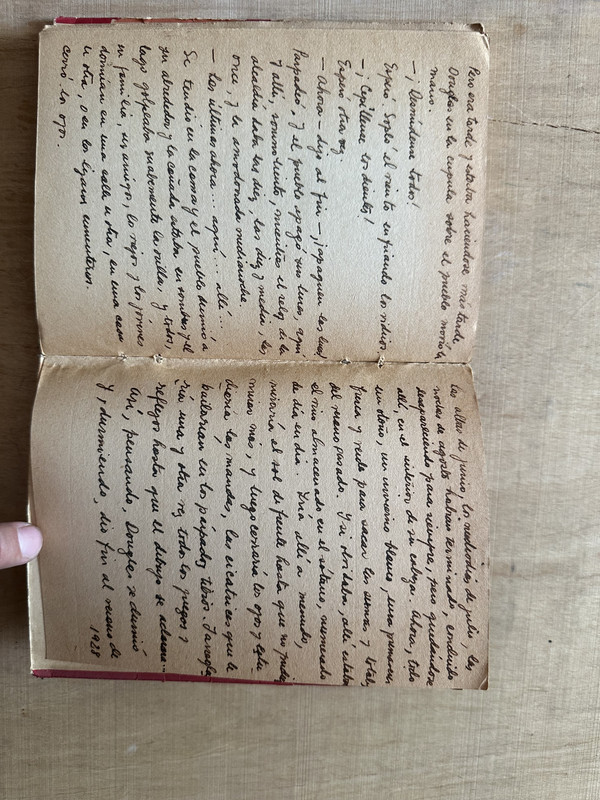 Pero era tarde y estaba haciéndose más tarde.
Douglas en la cúpula sobre el pueblo movió la
mano.
— ¡Desnúdense todos!
Esperó. Sopló el viento enfriando los vidrios
— ¡Cepíllense los dientes!
Esperó otra vez
— Ahora — dijo al fin — ¡apaguen las luces
Parpadeó, y el pueblo apagó sus luces, aquí
y allí, somnoliento, mientras el reloj de la
alcaldía daba las diez, las diez y media, las
once, y la amodorrada medianoche.
— Los últimos ahora... aquí... allí...
Se tendió en la cama y el pueblo durmió a
su alrededor y la cañada estaba en sombras y el
lago golpeaba suavemente la orilla, y todos,
su familia, sus amigos, los viejos y los jóvenes
dormían en una calle u otra, en una casa
u otra, o en los lejanos cementerios.
Cerró los ojos.
Las albas de junio, los mediodías de julio, las
noches de agosto habían terminado, concluido
desaparecido para siempre, pero quedándose
allí, en el interior de su cabeza. Ahora, todo
un otoño, un invierno blanco, una primavera
fresca y verde para sacar las sumas y totales
del verano pasado. Y si olvidaba, allí estaba
el vino almacenado en el sótano, numerado
de día en día. Iría allí a menudo,
miraría el sol de frente hasta que no pudiera
mirar más, y luego cerraría los ojos y estu-
diaría las manchas, las cicatrices que le
bailarían en los párpados tibios. Y arregla-
ría una y otra vez todos los fuegos y
reflejos hasta que el dibujo se aclarara...
Así, pensando, Douglas se durmió
Y, durmiendo, dio fin al verano de
1928